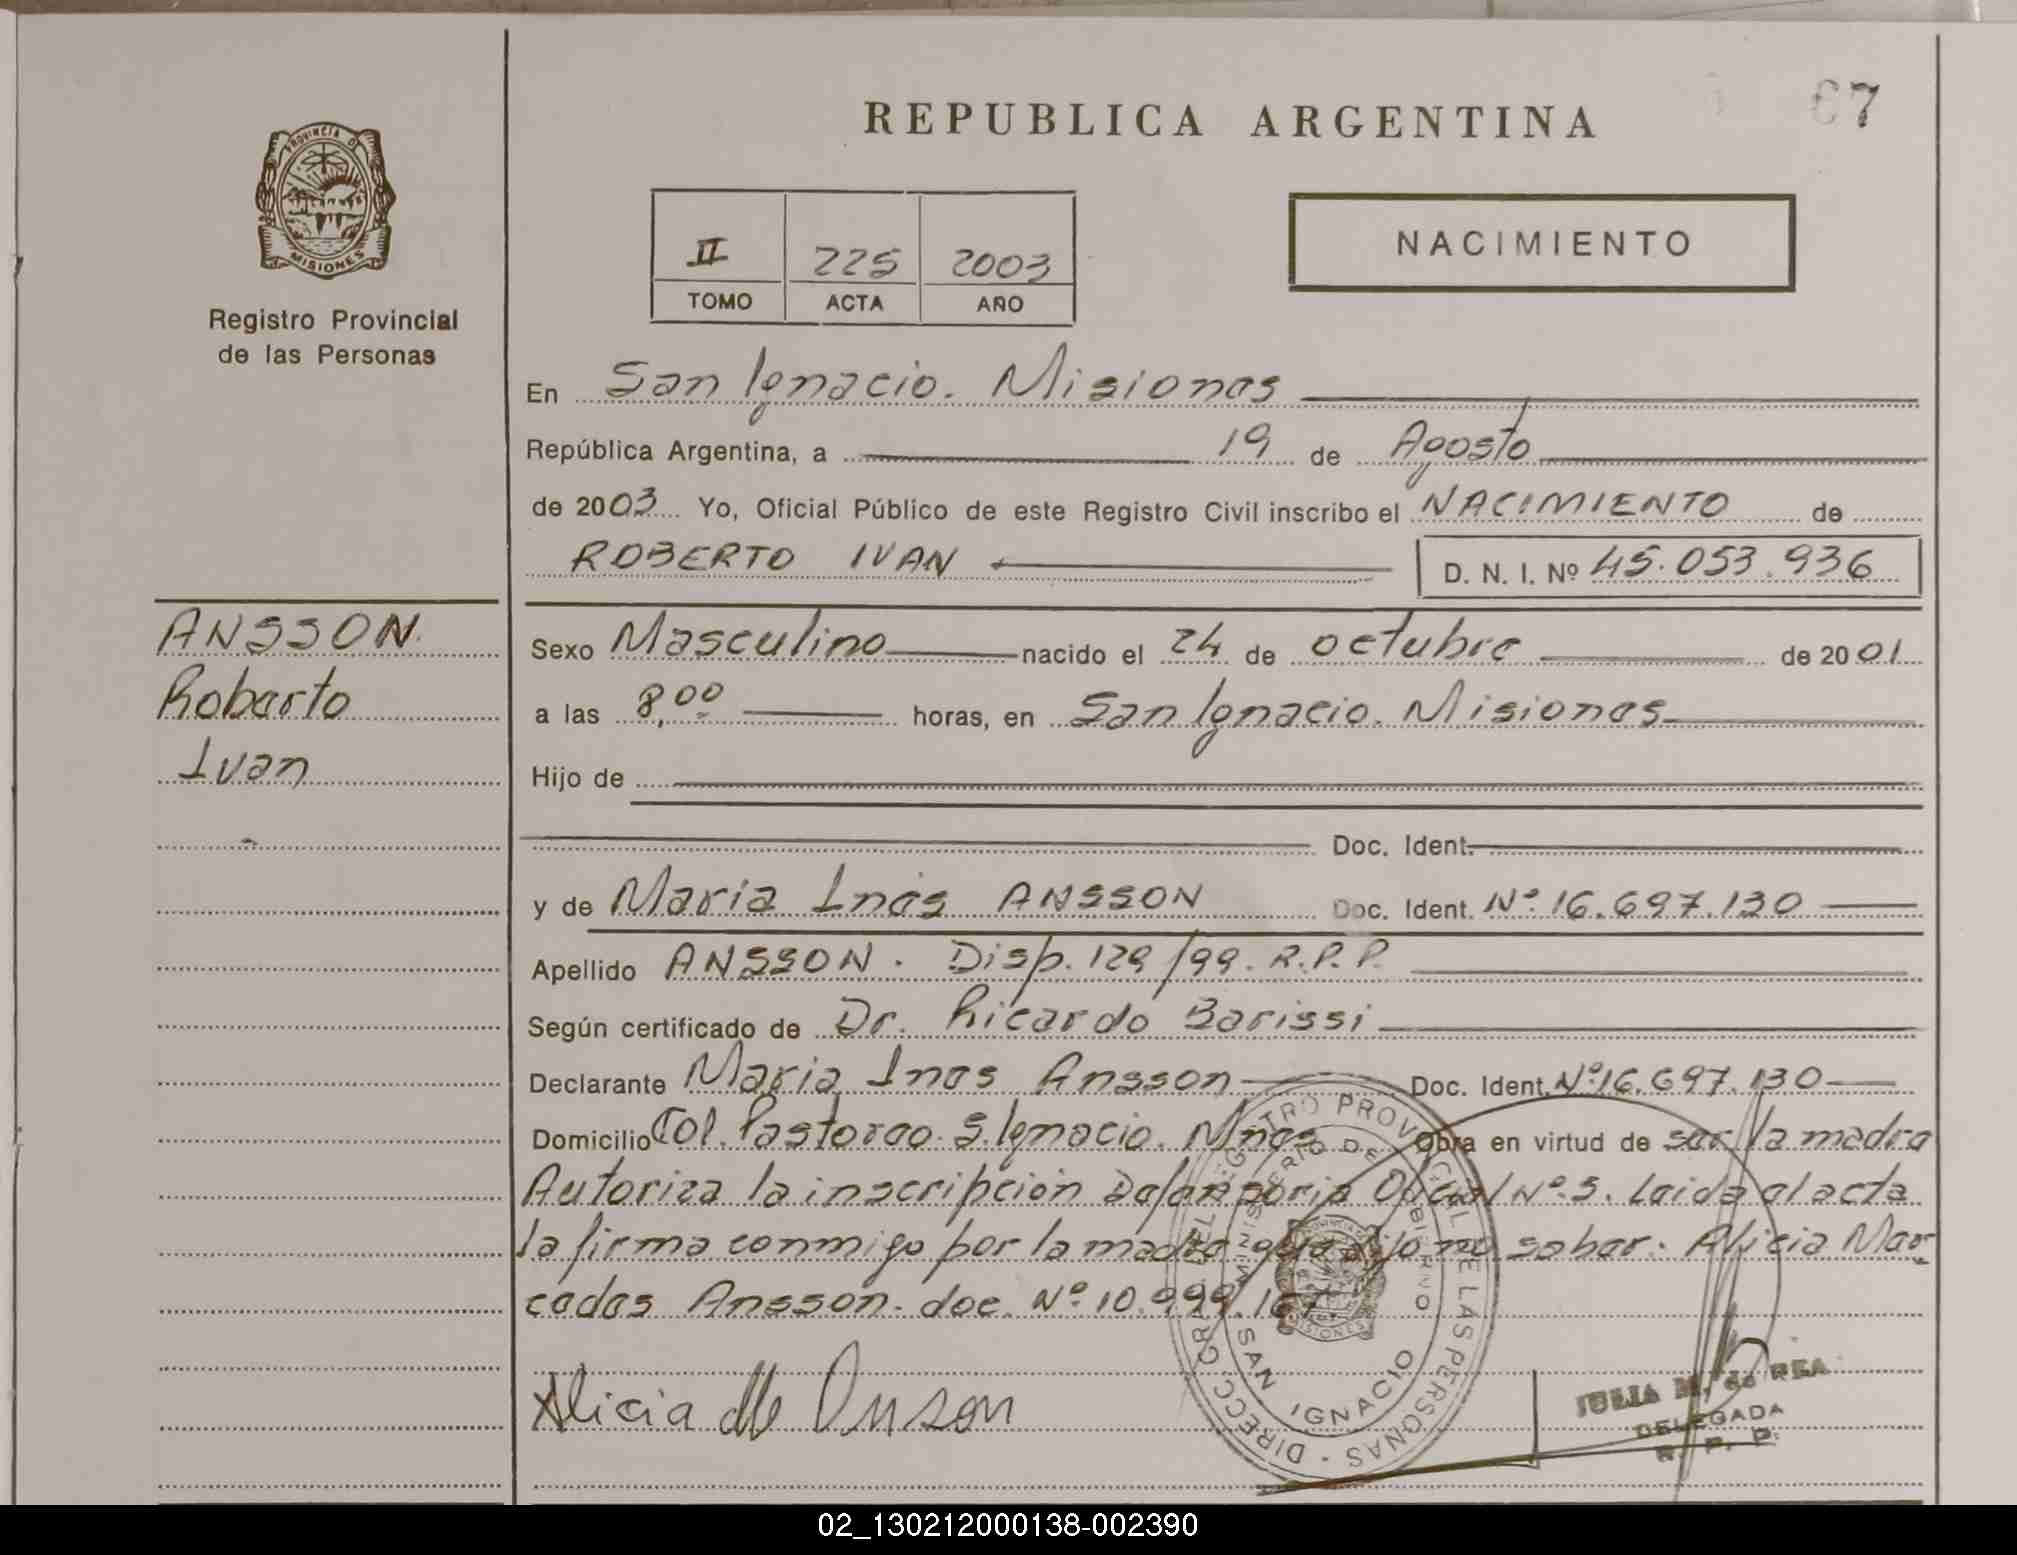 REPUBLICA ARGENTINA
67
PROVINCIA DE
MISIONES
Registro Provincial
de las Personas
II 225 2003
TOMO ACTA AÑO
NACIMIENTO
En San Ignacio. Misiones
República Argentina, a 19 de Agosto
de 2003 Yo, Oficial Público de este Registro Civil inscribo el NACIMIENTO de
ROBERTO IVAN D. N. I. Nº 45.053.936
ANSSON
Roberto
Ivan
Sexo Masculino nacido el 24 de octubre de 2001
a las 8,00 horas, en San Ignacio. Misiones
Hijo de
Doc. Ident.
y de Maria Inés ANSSON Doc. Ident. Nº 16.697.130
Apellido ANSSON. Disp. 129/99. R.P.P.
Según certificado de Dr. Ricardo Barissi
Declarante Maria Ines Ansson Doc. Ident. Nº 16.697.130
Domicilio Col. Pastoreo. S. Ignacio. Mnes Obra en virtud de ser la madre
Autoriza la inscripción Defensoria Oficial Nº 5. Leida el acta
la firma conmigo por la madre que dijo no saber. Alicia Mer
cedes Ansson. doc. Nº 10.999.167
Alicia de Ansson
DIRECC. GRAL. DEL REGISTRO PROVINCIAL DE LAS PERSONAS
MINISTERIO DE GOBIERNO
SAN IGNACIO
MISIONES
JULIA M. de REA
DELEGADA
R. P. P.
02_130212000138-002390